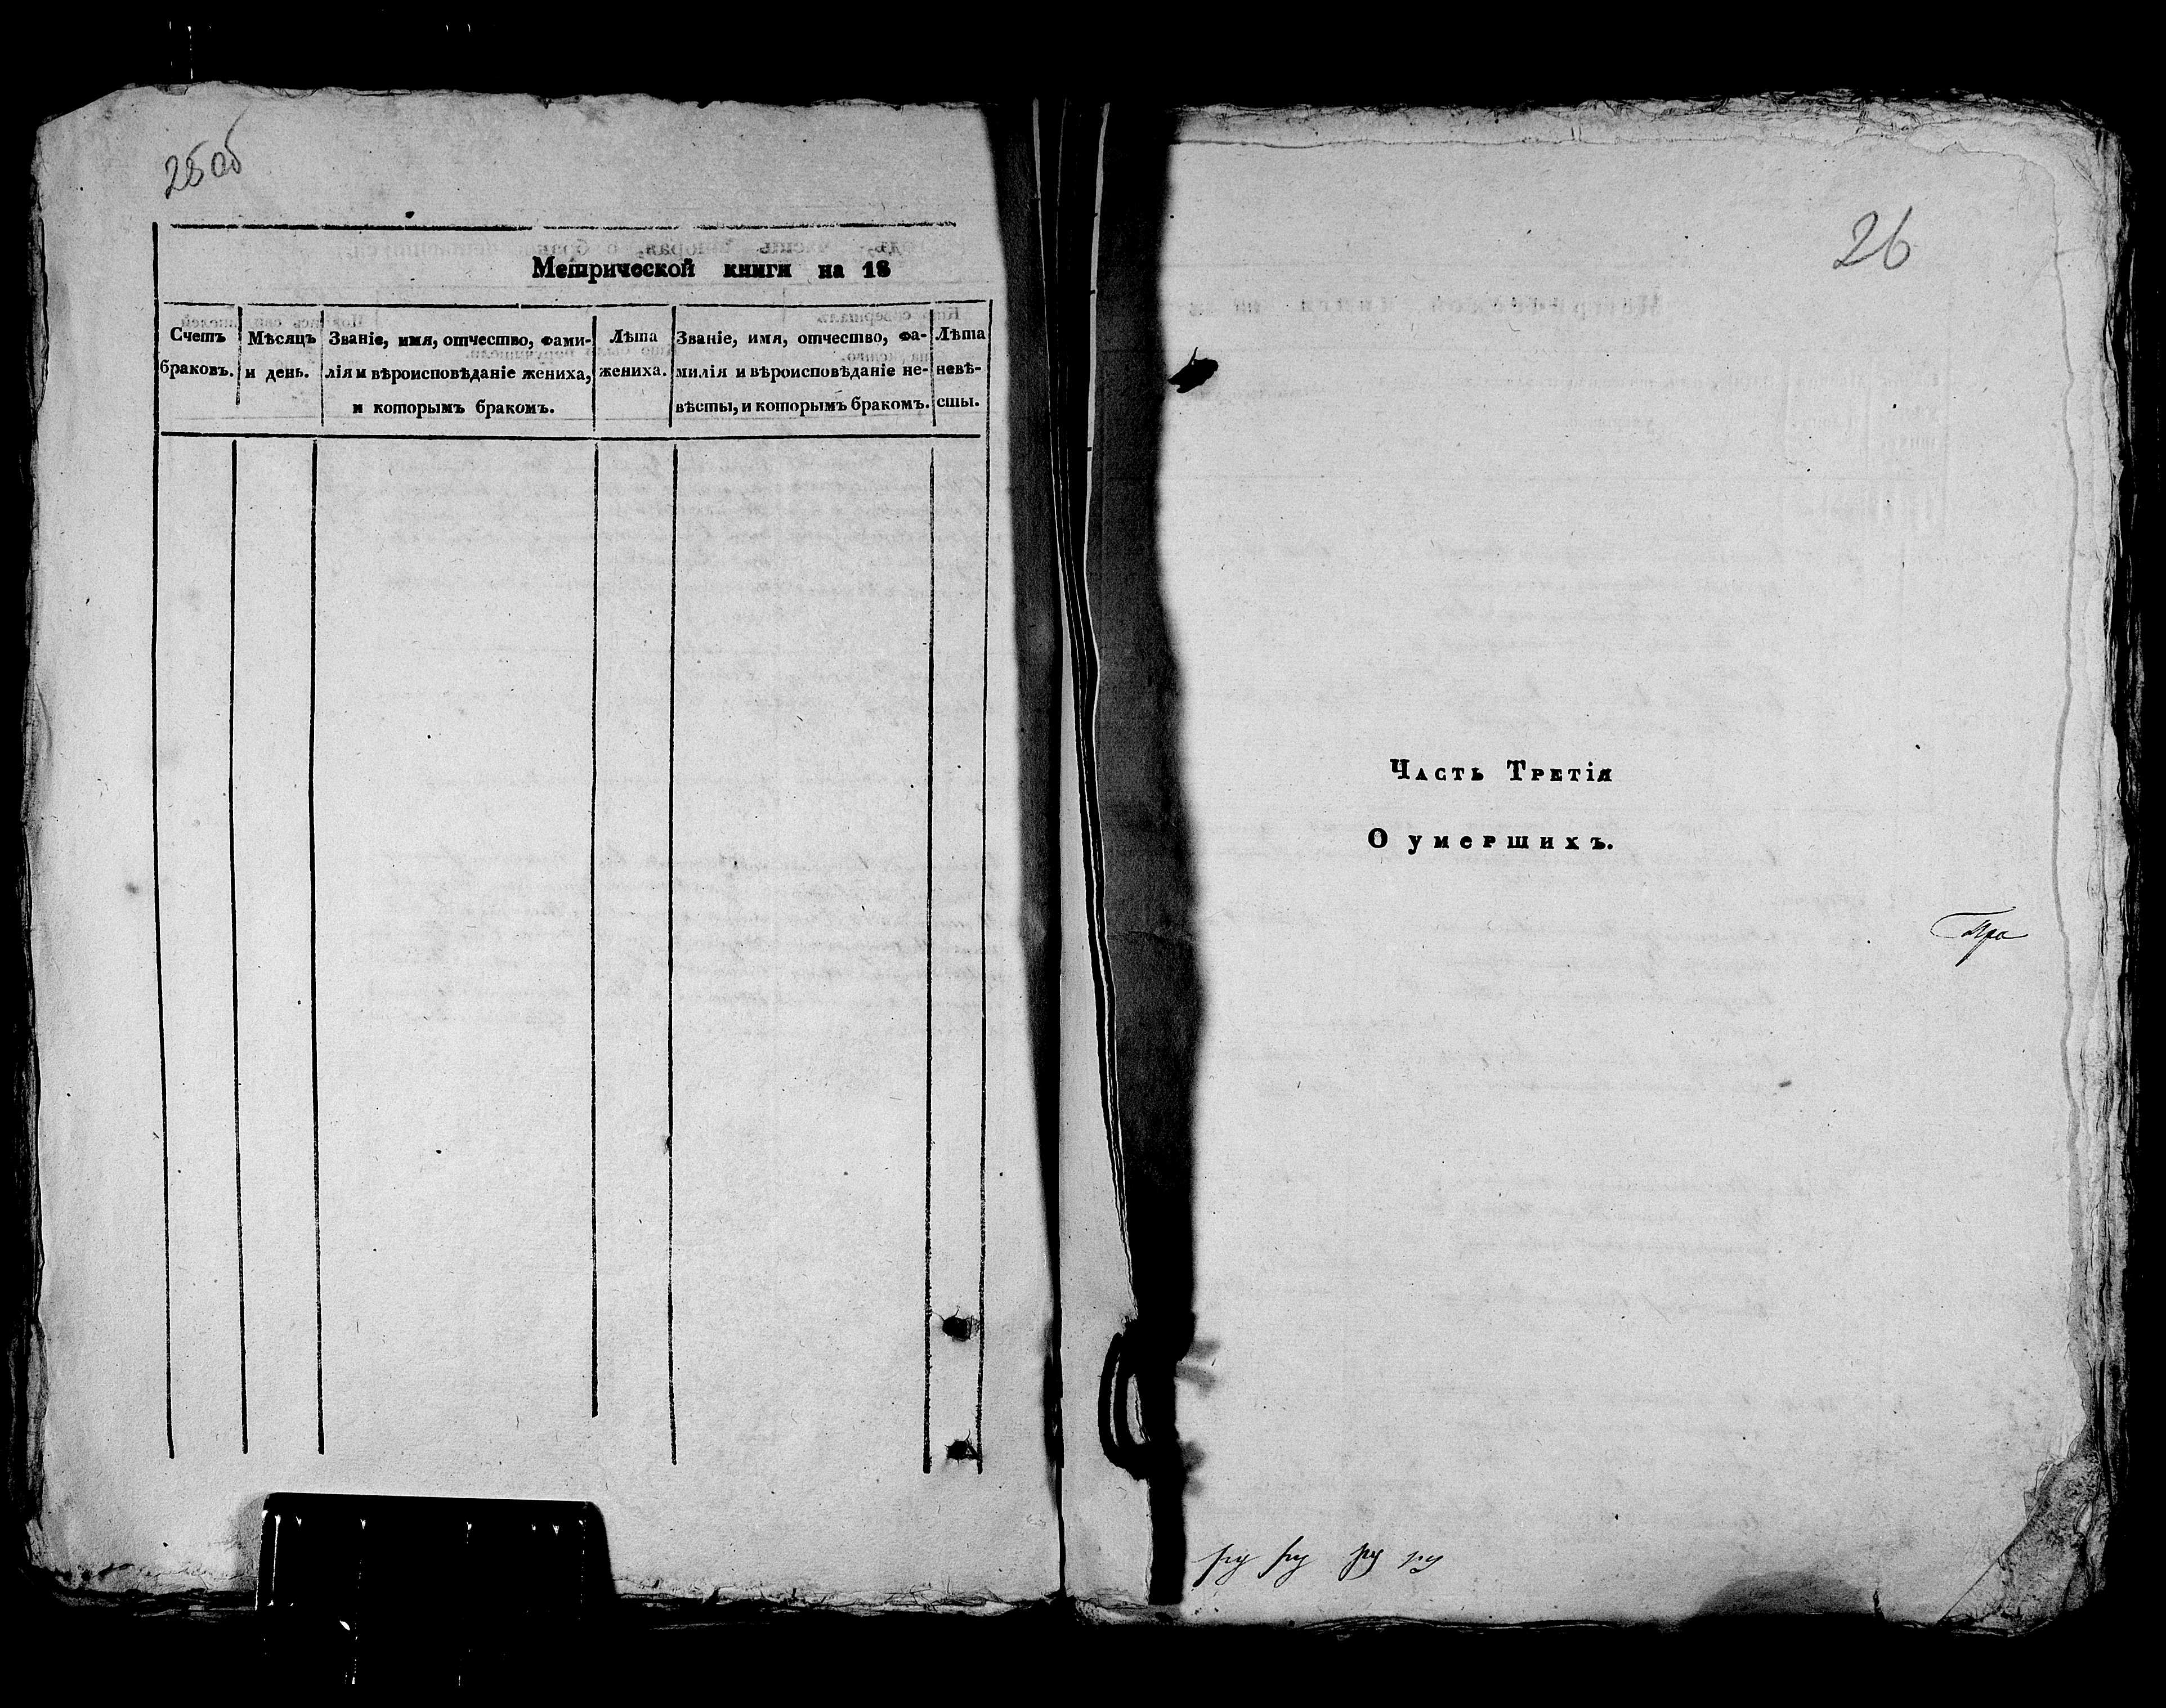 25об
Метрической книги на 18
Счетъ браковъ.
Мѣсяцъ и день.
Званіе, имя, отчество, фами-
лія и вѣроисповѣданіе жениха,
и которымъ бракомъ.
Лѣта
жениха.
Званіе, имя, отчество, фа-
милія и вѣроисповѣданіе не-
вѣсты, и которымъ бракомъ.
Лѣта
невѣ-
сты.
26
Часть Третія
О умершихъ.
ру ру ру ру